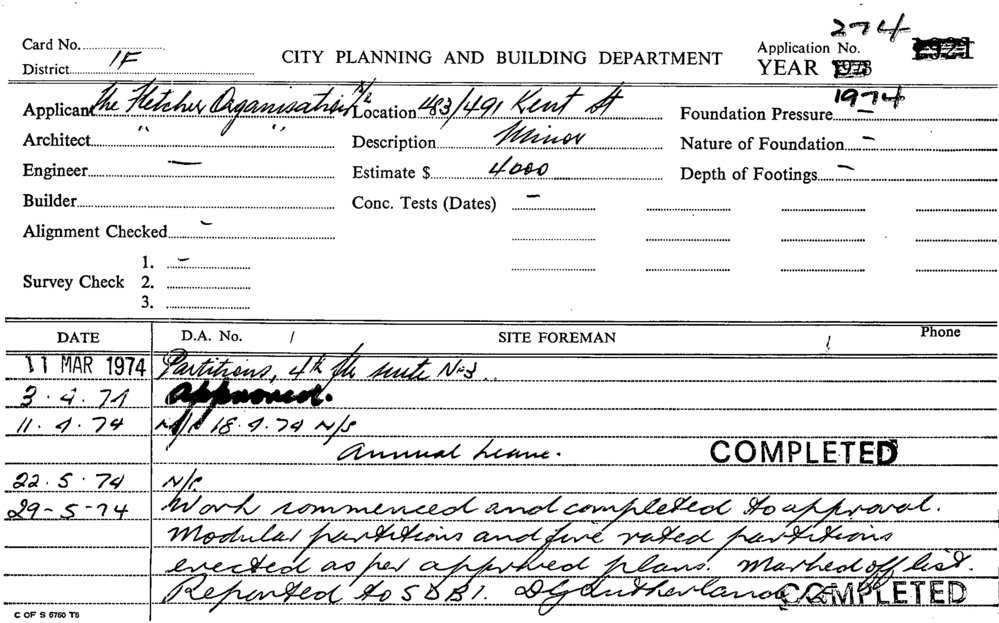 274
Card No.
District 1F
CITY PLANNING AND BUILDING DEPARTMENT
Application No.
YEAR
1974
Applicant The Fletcher Organisation P/L Location 483/491 Kent St Foundation Pressure –
Architect " " Description Minor Nature of Foundation –
Engineer – Estimate $ 4000 Depth of Footings –
Builder Conc. Tests (Dates) –
Alignment Checked –
Survey Check 1. –
2.
3.
DATE D.A. No. / SITE FOREMAN / Phone
11 MAR 1974 Partitions, 4th flr suite No 3.
3.4.74 Approved.
11.4.74 N/S 18.4.74 N/S
Annual Leave. COMPLETED
22.5.74 N/S
29-5-74 Work commenced and completed to approval.
Modular partitions and fire rated partitions
erected as per approved plans. Marked off list.
Reported to SDBI. DG Sutherland COMPLETED
C OF S 6750 T6